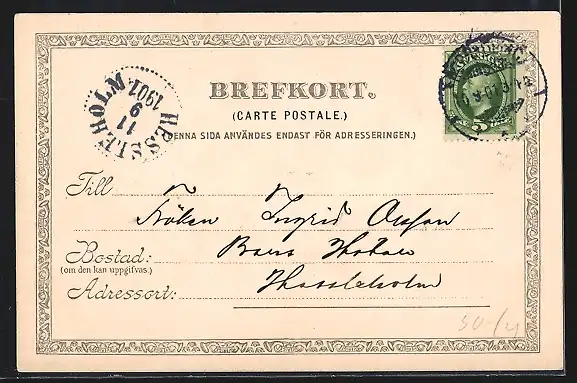 BREFKORT.
(CARTE POSTALE.)
(DENNA SIDA ANVÄNDES ENDAST FÖR ADRESSERINGEN.)
HESSLEHOLM
11
9
1901
5
Till
Fröken Ingrid Olsson
Bostad:
(om den kan uppgifvas.)
Adressort:
Hessleholm
50/4